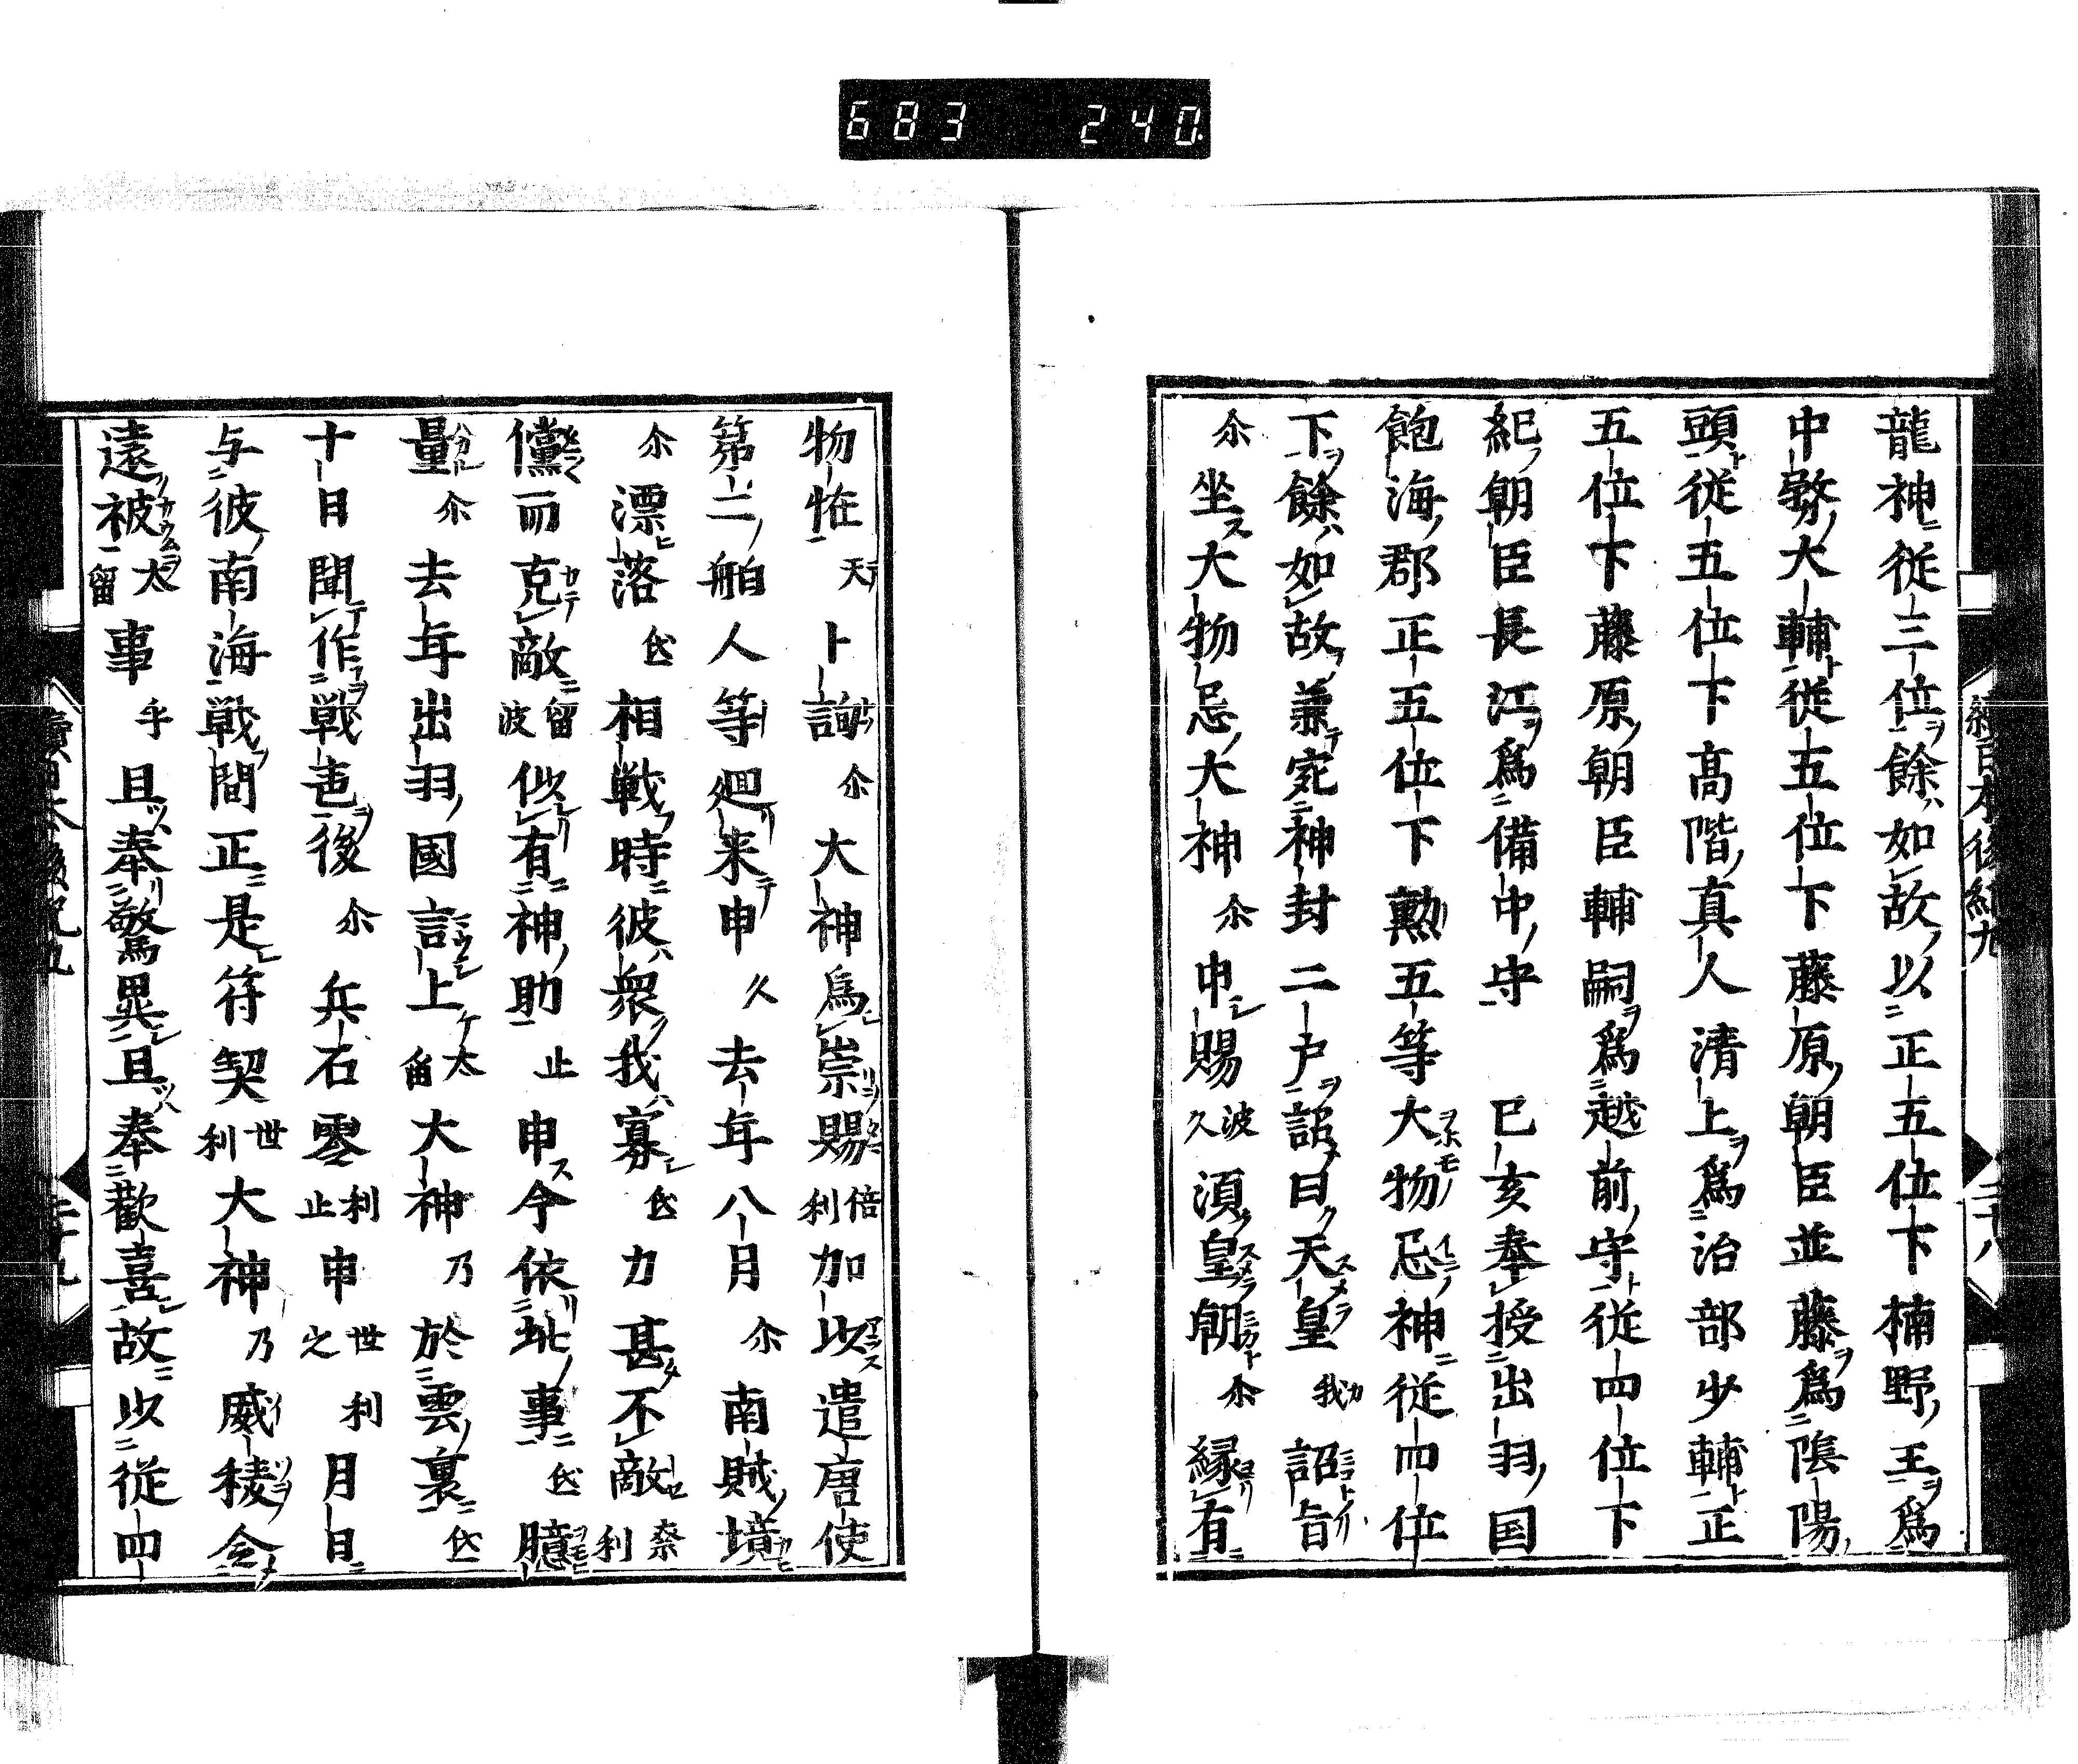 683 240
續日本後紀九
二十八
龍神従三位餘如故以正五位下楠野王爲
中務大輔従五位下藤原朝臣並藤爲陰陽
頭従五位下高階真人清上爲治部少輔正
五位下藤原朝臣輔嗣爲越前守従四位下
紀朝臣長江爲備中守 已亥奉授出羽国
飽海郡正五位下勲五等大物忌神従四位
下餘如故兼宛神封二戸詔曰天皇我詔旨
尓坐大物忌大神尓申賜波久須皇朝尓縁有
物恠天卜詢尓大神爲祟賜倍利加以遣唐使
第二舶人等廻来申久去年八月尓南賊境
尓漂落弖相戦時彼衆我寡弖力甚不敵奈利
儻而克敵留波似有神助止申今依此事弖臆
量尓去年出羽國言上太留大神乃於雲裏弖
十日間作戦聲後尓兵石零利止申世之利月日
与彼南海戦間正是符契世利大神乃威稜令
遠被太留事乎且奉驚異且奉歡喜故以従四